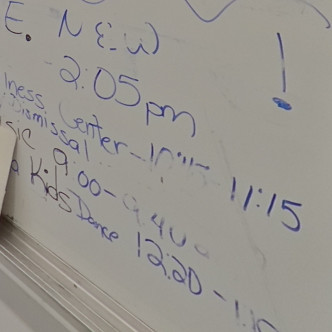 E. N E W !
2:05pm
iness Center - 11:15
ismissal
sic 9:00-9:40
Kids Dance 12:20 -